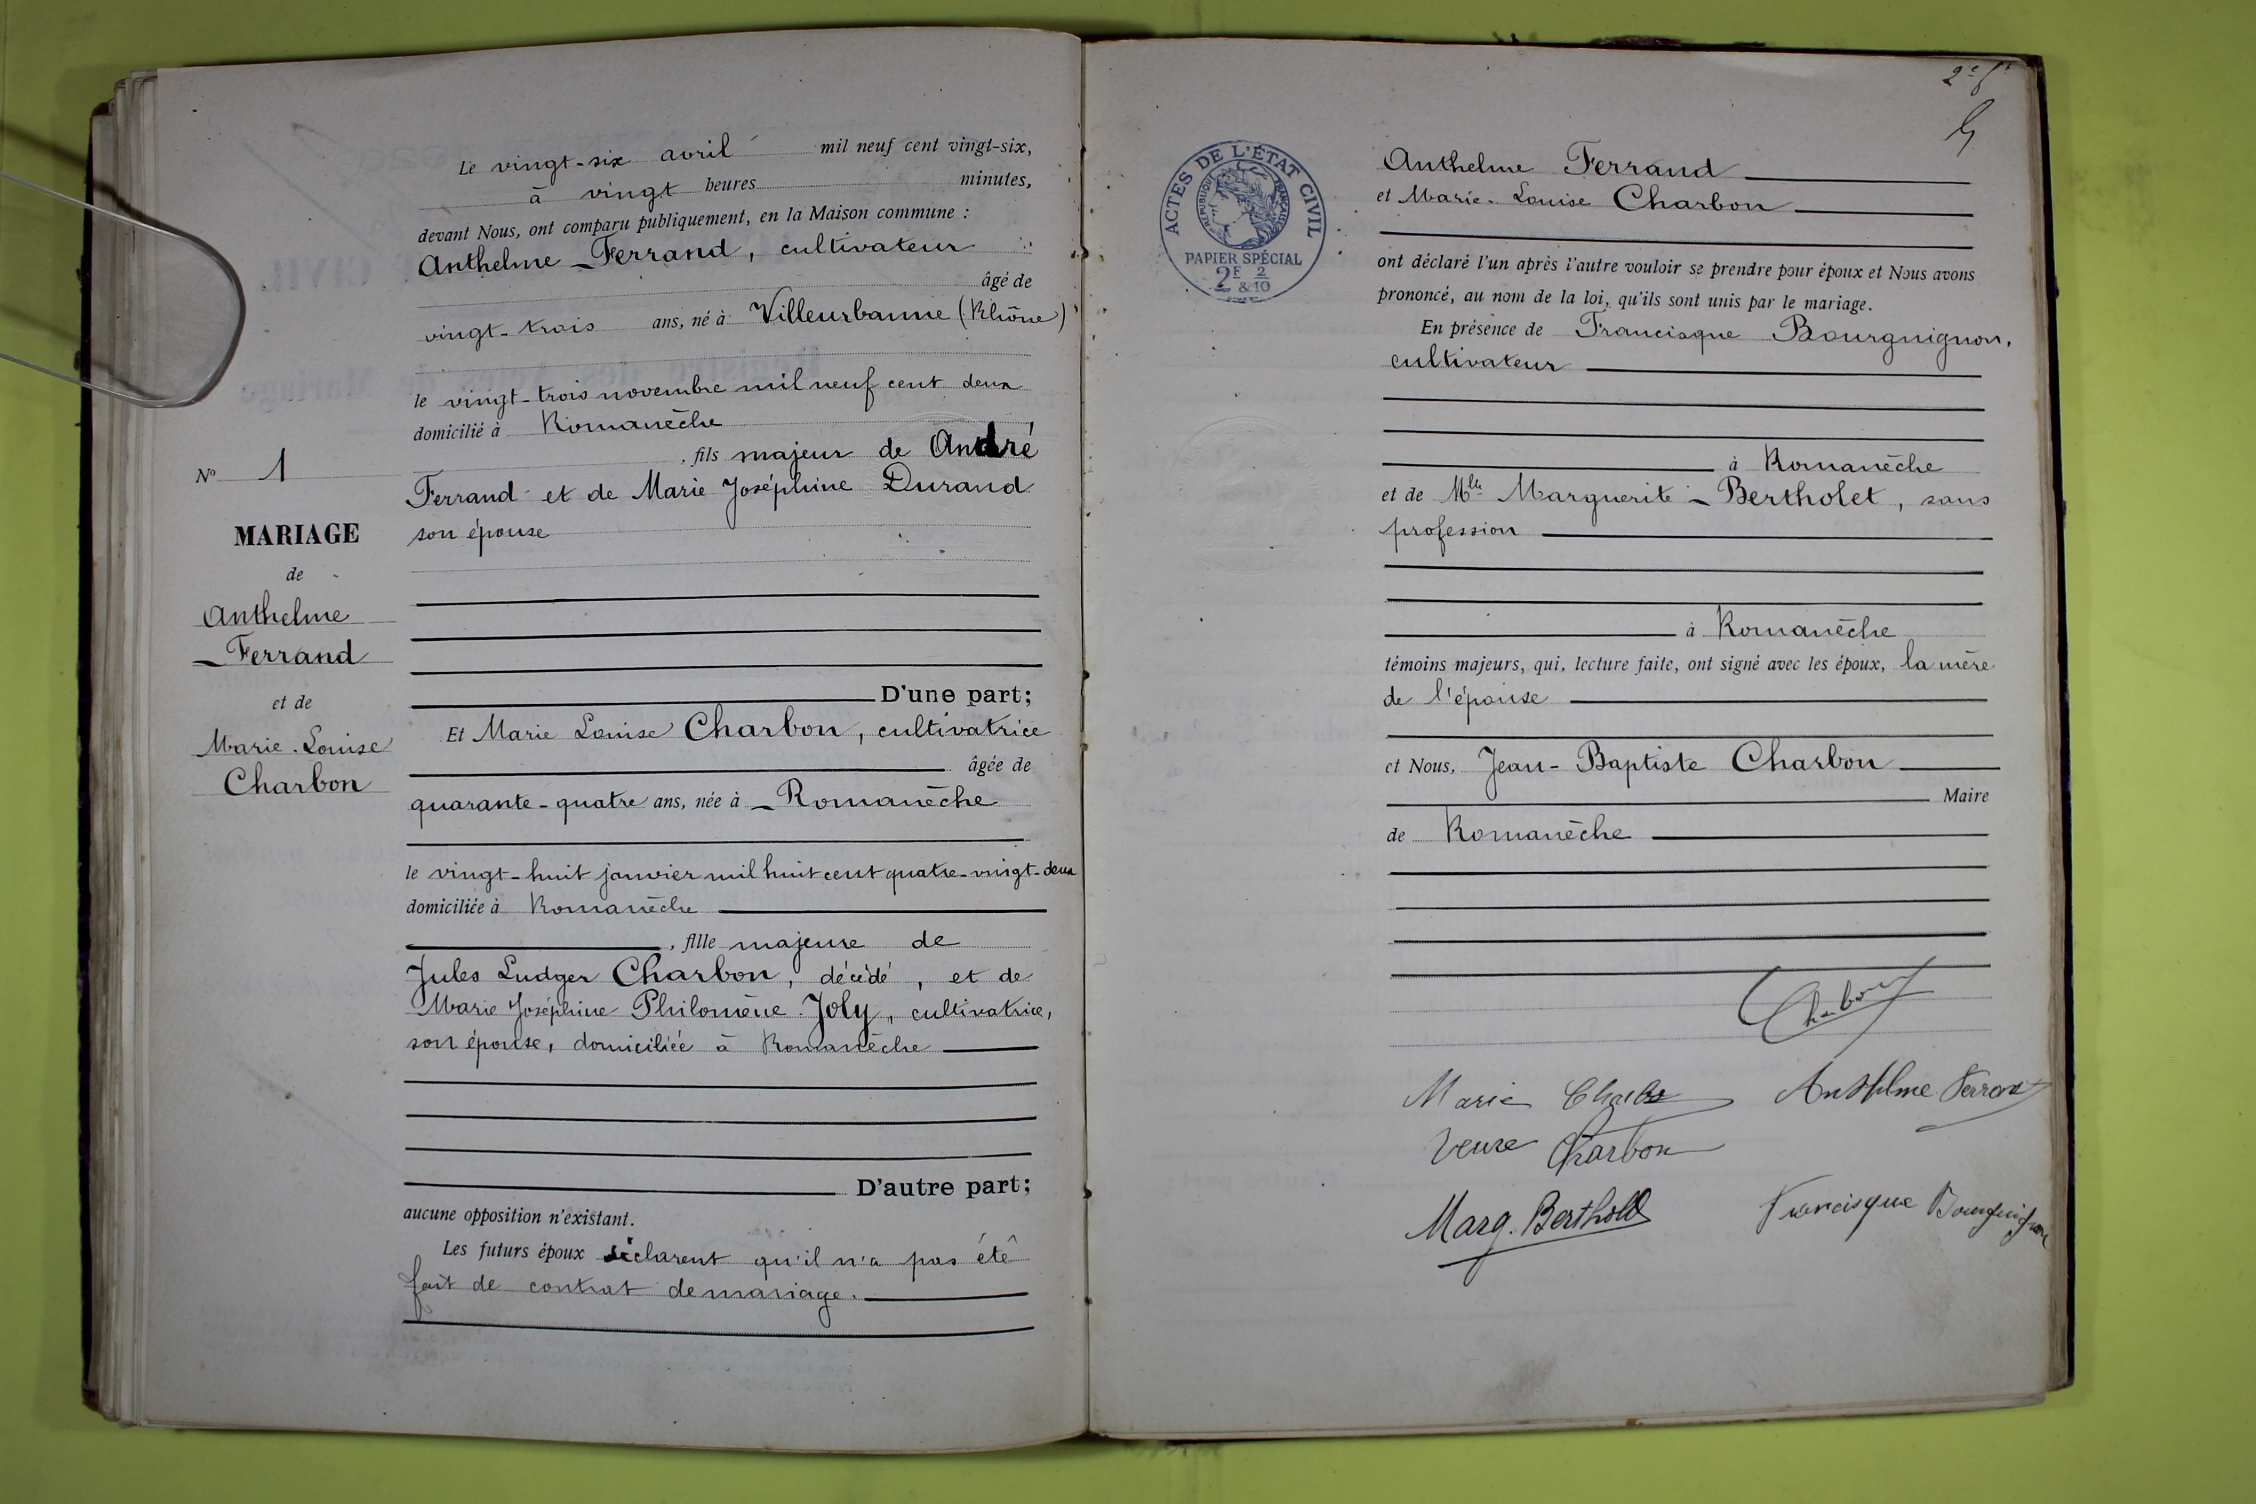 Le vingt-six avril mil neuf cent vingt-six,
à vingt heures minutes,
devant Nous, ont comparu publiquement, en la Maison commune :
Anthelme Ferrand, cultivateur
âgé de
vingt-trois ans, né à Villeurbanne (Rhône)
le vingt-trois novembre mil neuf cent deux
domicilié à Romanèche
, fils majeur de André
Ferrand et de Marie Joséphine Durand
son épouse
D'une part;
Et Marie Louise Charbon, cultivatrice
âgée de
quarante-quatre ans, née à Romanèche
le vingt-huit janvier mil huit cent quatre-vingt-deux
domiciliée à Romanèche
, fille majeure de
Jules Ludger Charbon, décédé, et de
Marie Joséphine Philomène Joly, cultivatrice,
son épouse, domiciliée à Romanèche
D'autre part;
aucune opposition n'existant.
Les futurs époux déclarent qu'il n'a pas été
fait de contrat de mariage.
No 1
MARIAGE
de
Anthelme
Ferrand
et de
Marie-Louise
Charbon
2e ft
ACTES DE L'ÉTAT CIVIL
RÉPUBLIQUE FRANÇAISE
PAPIER SPÉCIAL
2F & 2/10
Anthelme Ferrand
et Marie-Louise Charbon
ont déclaré l'un après l'autre vouloir se prendre pour époux et Nous avons
prononcé, au nom de la loi, qu'ils sont unis par le mariage.
En présence de Francisque Bourguignon,
cultivateur
à Romanèche
et de Mlle Marguerite Bertholet, sans
profession
à Romanèche
témoins majeurs, qui, lecture faite, ont signé avec les époux, la mère
de l'épouse
et Nous, Jean-Baptiste Charbon
Maire
de Romanèche
Charbon
Marie Charbon Anthelme Ferrand
Veuve Charbon
Marg. Bertholet Francisque Bourguignon